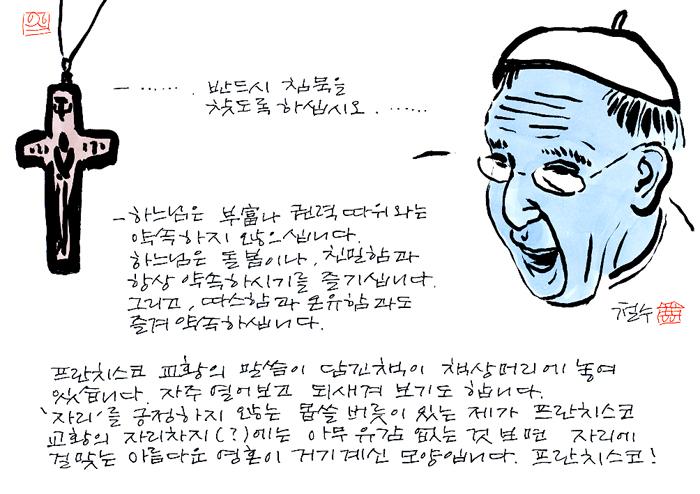 – …… . 반드시 침묵을
찾도록 하십시오 . ……
– 하느님은 부富나 권력 따위와는
약속하지 않으십니다.
하느님은 돌봄이나, 친밀함과
항상 약속하시기를 즐기십니다.
그리고, 따스함과 온유함과도
즐겨 약속하십니다.
철수
프란치스코 교황의 말씀이 담긴책이 책상머리에 놓여
있습니다. 자주 열어보고 되새겨 보기도 합니다.
'자리'를 긍정하지 않는 몹쓸 버릇이 있는 제가 프란치스코
교황의 자리차지(?)에는 아무 유감 없는 것 보면 자리에
걸맞는 아름다운 영혼이 거기계신 모양입니다. 프란치스코!